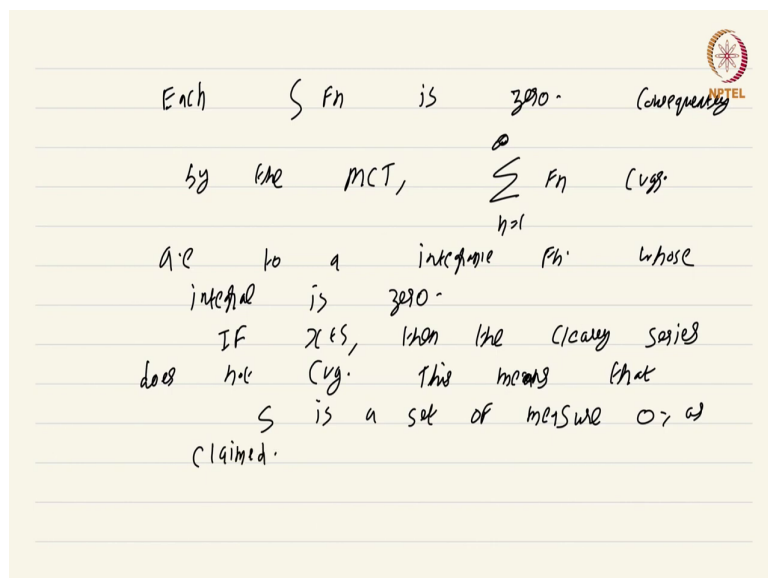 Each ∫ Fn is zero. Consequently
NPTEL
by the MCT, ∞ ∑ n=1 Fn Cvgs.
a.e to a integrable Fn. whose
integral is zero.
IF x∈S, then the Clearly series
does not Cvg. This means that
S is a set of measure 0, as
claimed.